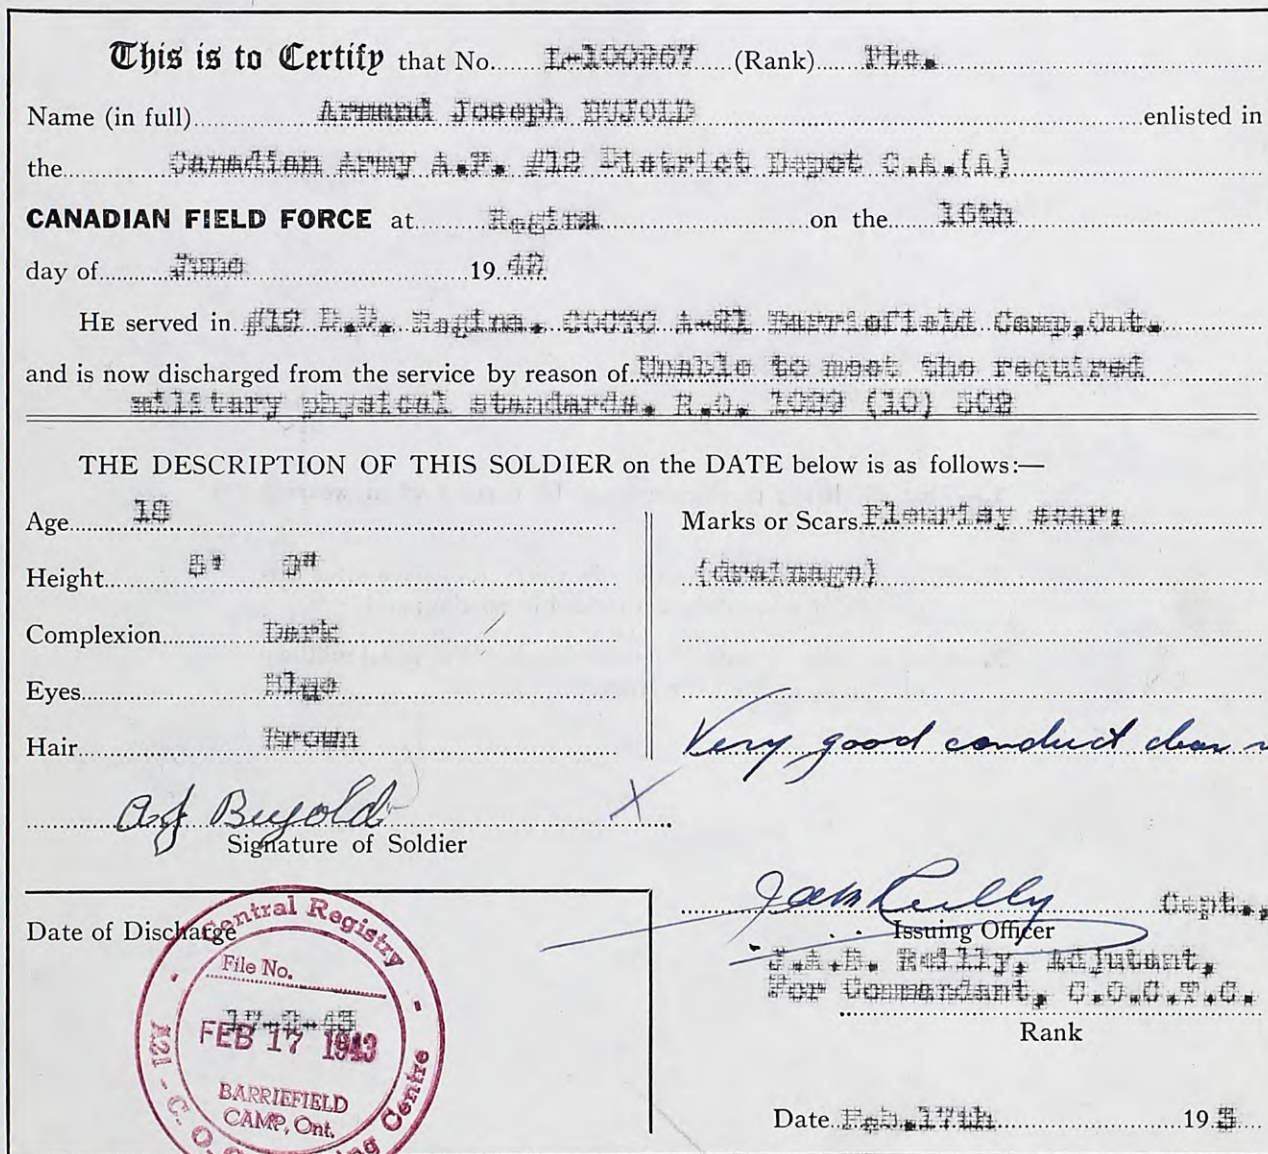 This is to Certify that No. L-100267 (Rank) Pte.
Name (in full) Armand Joseph BUJOLD enlisted in
the Canadian Army A.F. #12 District Depot C.A.(A)
CANADIAN FIELD FORCE at Regina on the 16th
day of June 1942
HE served in #12 D.D. Regina. COCTC A-21 Barriefield Camp,Ont.
and is now discharged from the service by reason of Unable to meet the required
military physical standards. R.O. 1029 (10) 502
THE DESCRIPTION OF THIS SOLDIER on the DATE below is as follows:—
Age 18
Height 5'
Complexion Dark
Eyes Blue
Hair Brown
Marks or Scars Pleurisy scars
(drainage)
Very good conduct clear
AJ Bujold X
Signature of Soldier
Date of Discharge
Central Registry
File No.
17-2-43
FEB 17 1943
BARRIEFIELD
CAMP, Ont.
A21 - C. O. C. Centre
Capt.,
Issuing Officer
Reilly, Adjutant,
For Commandant, C.O.C.T.C.
Rank
Date Feb.17th 19